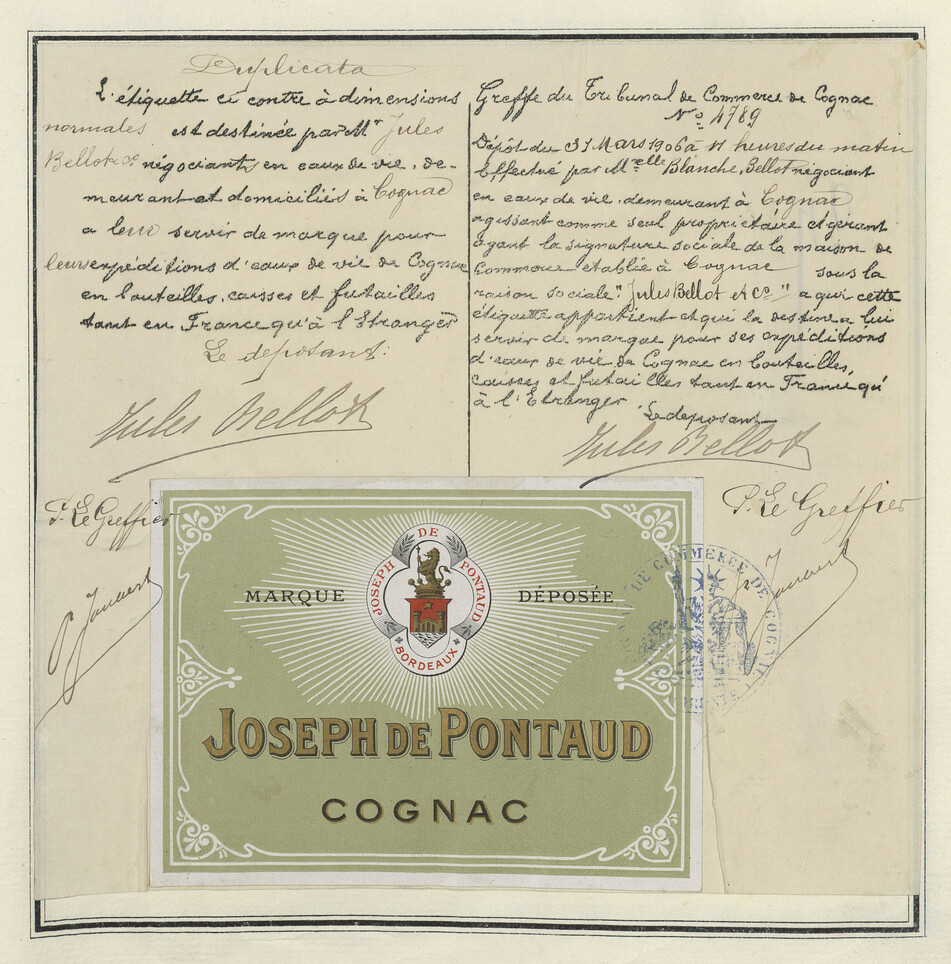 Duplicata
L'étiquette ci contre à dimensions
normales est destinée par Mr Jules
Bellot & Co négociants en eaux de vie, de-
meurant et domiciliés à Cognac
a leur servir de marque pour
leurs expéditions d'eaux de vie de Cognac
en bouteilles, caisses et futailles
tant en France qu'à l'Etranger
Le deposant:
Jules Bellot
P. Le Greffier
Greffe du Tribunal de Commerce de Cognac
No 4789
Dépôt du 31 Mars 1906 à 11 heures du matin
Effectué par Melle Blanche, Bellot négociant
en eaux de vie, demeurant à Cognac
agissant comme seul propriétaire et gérant
ayant la signature sociale de la maison de
Commerce établie à Cognac sous la
raison sociale "Jules Bellot et Co" a qui cette
étiquette appartient et qui la destine a lui
servir de marque pour ses expéditions
d'eaux de vie de Cognac en bouteilles,
caisses et futailles tant en France qu'
à l'Etranger Le deposant
Jules Bellot
P. Le Greffier
DE COMMERCE DE COGNAC
MARQUE DÉPOSÉE
JOSEPH DE PONTAUD
BORDEAUX
JOSEPH DE PONTAUD
COGNAC